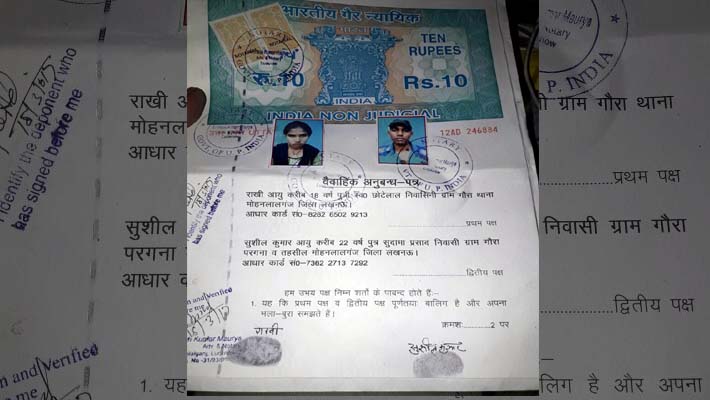 भारतीय गैर न्यायिक
रु.10
TEN
RUPEES
Rs.10
INDIA
INDIA NON JUDICIAL
12AD 246884
वैवाहिक अनुबन्ध-पत्र
राखी आयु करीब 18 वर्ष पुत्री स्व0 छोटेलाल निवासिनी ग्राम गौरा थाना
मोहनलालगंज जिला लखनऊ।
आधार कार्ड सं0-8282 6502 9213
प्रथम पक्ष
सुशील कुमार आयु करीब 22 वर्ष पुत्र सुदामा प्रसाद निवासी ग्राम गौरा
परगना व तहसील मोहनलालगंज जिला लखनऊ।
आधार कार्ड सं0-7362 2713 7292
द्वितीय पक्ष
हम उभय पक्ष निम्न शर्तो के पाबन्द होते हैं:-
1. यह कि प्रथम पक्ष व द्वितीय पक्ष पूर्णतया बालिग है और अपना
भला-बुरा समझते हैं।
क्रमशः.......2 पर
राखी
I identify the deponent who
has signed before me
राखी
मोहनलालगंज
आधार
सुशील
परगना
आधार
1. यह
and Verified
me
Kumar Maurya
U. P. INDIA
ग्राम गौरा थाना
प्रथम पक्ष
निवासी ग्राम गौरा
द्वितीय पक्ष
बालिग है और अपना